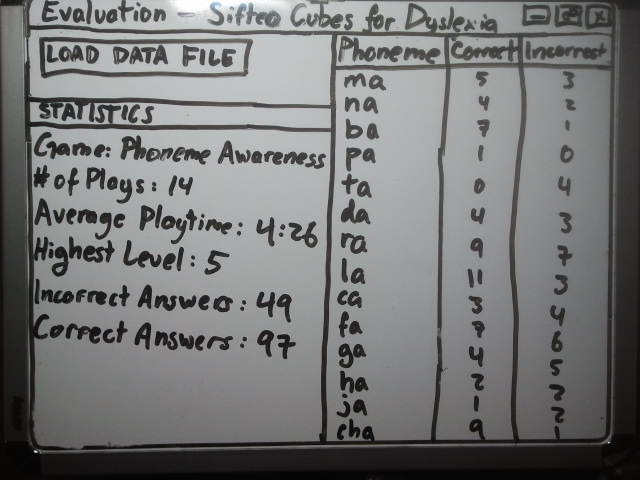 Evaluation - Sifteo Cubes for Dyslexia
LOAD DATA FILE
STATISTICS
Game: Phoneme Awareness
# of Plays: 14
Average Playtime: 4:26
Highest Level: 5
Incorrect Answers: 49
Correct Answers: 97
Phoneme Correct Incorrect
ma 5 3
na 4 2
ba 7 1
pa 1 0
ta 0 4
da 4 3
ra 9 7
la 11 3
ca 3 4
fa 7 6
ga 4 5
ha 2 2
ja 1 2
cha 9 1